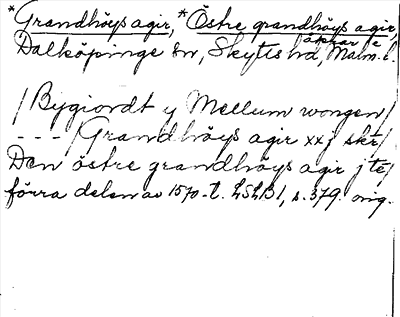 *Grandhöys agir, *Östre grandhöys agir,
åkrar i
Dalköpinge sn, Skytts hd, Malm. l.
/Bygiordt y Mellum wongen/
---/Grandhöys agir xxj skr/
Den östre grandhöys agir j te/
förra delen av 1570-t. LSLB1, s. 379. orig.